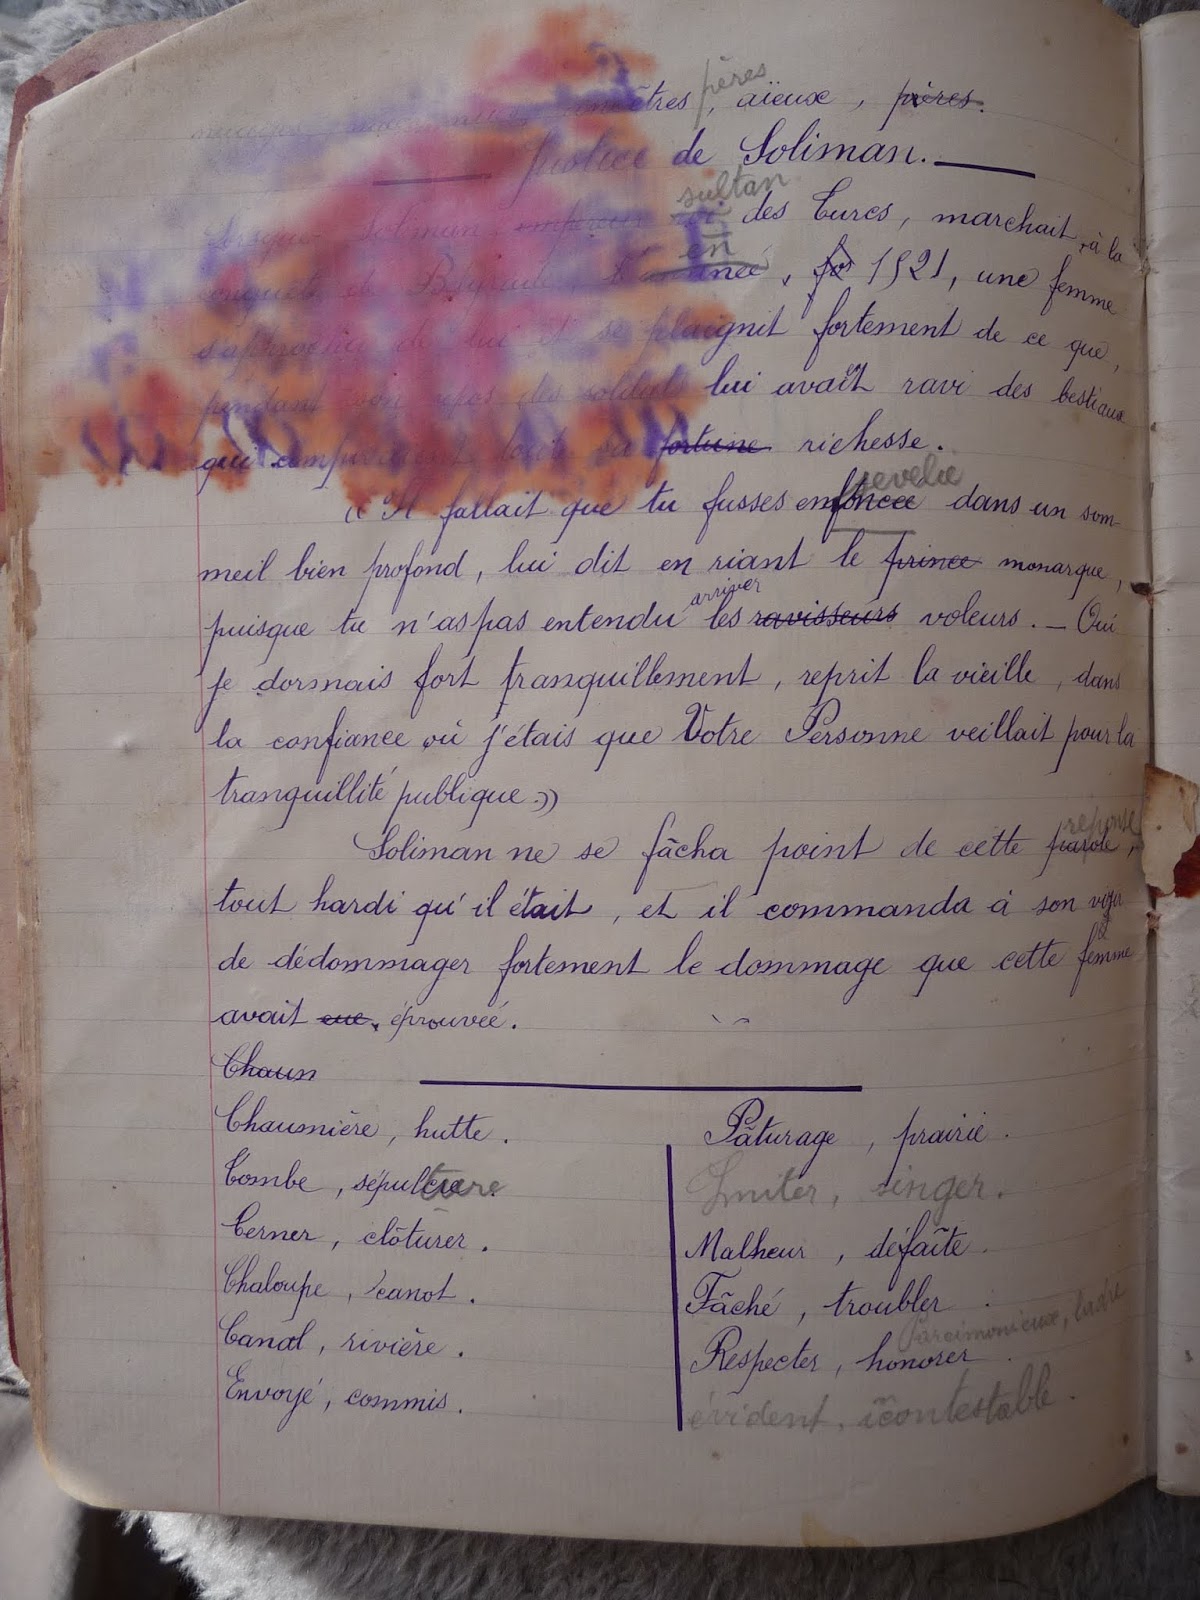 ancêtres, pères, aïeux, pères.
Justice de Soliman.
Lorsque Soliman, empereur roi sultan des Turcs, marchait à la
conquête de l'année en, 1521, une femme
s'approcha de lui et se plaignit fortement de ce que,
pendant son repos des soldats lui avait ravi des bestiaux
qui toute sa fortune richesse.
« Il fallait que tu fusses enfoncée dans un som-
meil bien profond, lui dit en riant le prince monarque,
puisque tu n'as pas entendu arriver les ravisseurs voleurs. — Oui
je dormais fort tranquillement, reprit la vieille, dans
la confiance où j'étais que Votre Personne veillait pour la
tranquillité publique. »
Soliman ne se fâcha point de cette parole réponse,
tout hardi qu'il était, et il commanda à son
de dédommager fortement le dommage que cette femme
avait eue, éprouvée.
Chaun
Chaumière, hutte.
Tombe, sépulture.
Cerner, clôturer.
Chaloupe, canot.
Canal, rivière.
Envoyé, commis.
Pâturage, prairie.
Imiter, singer.
Malheur, défaite.
Fâché, troubler.
Parcimonieux, ladre
Respecter, honorer.
évident, icontestable.